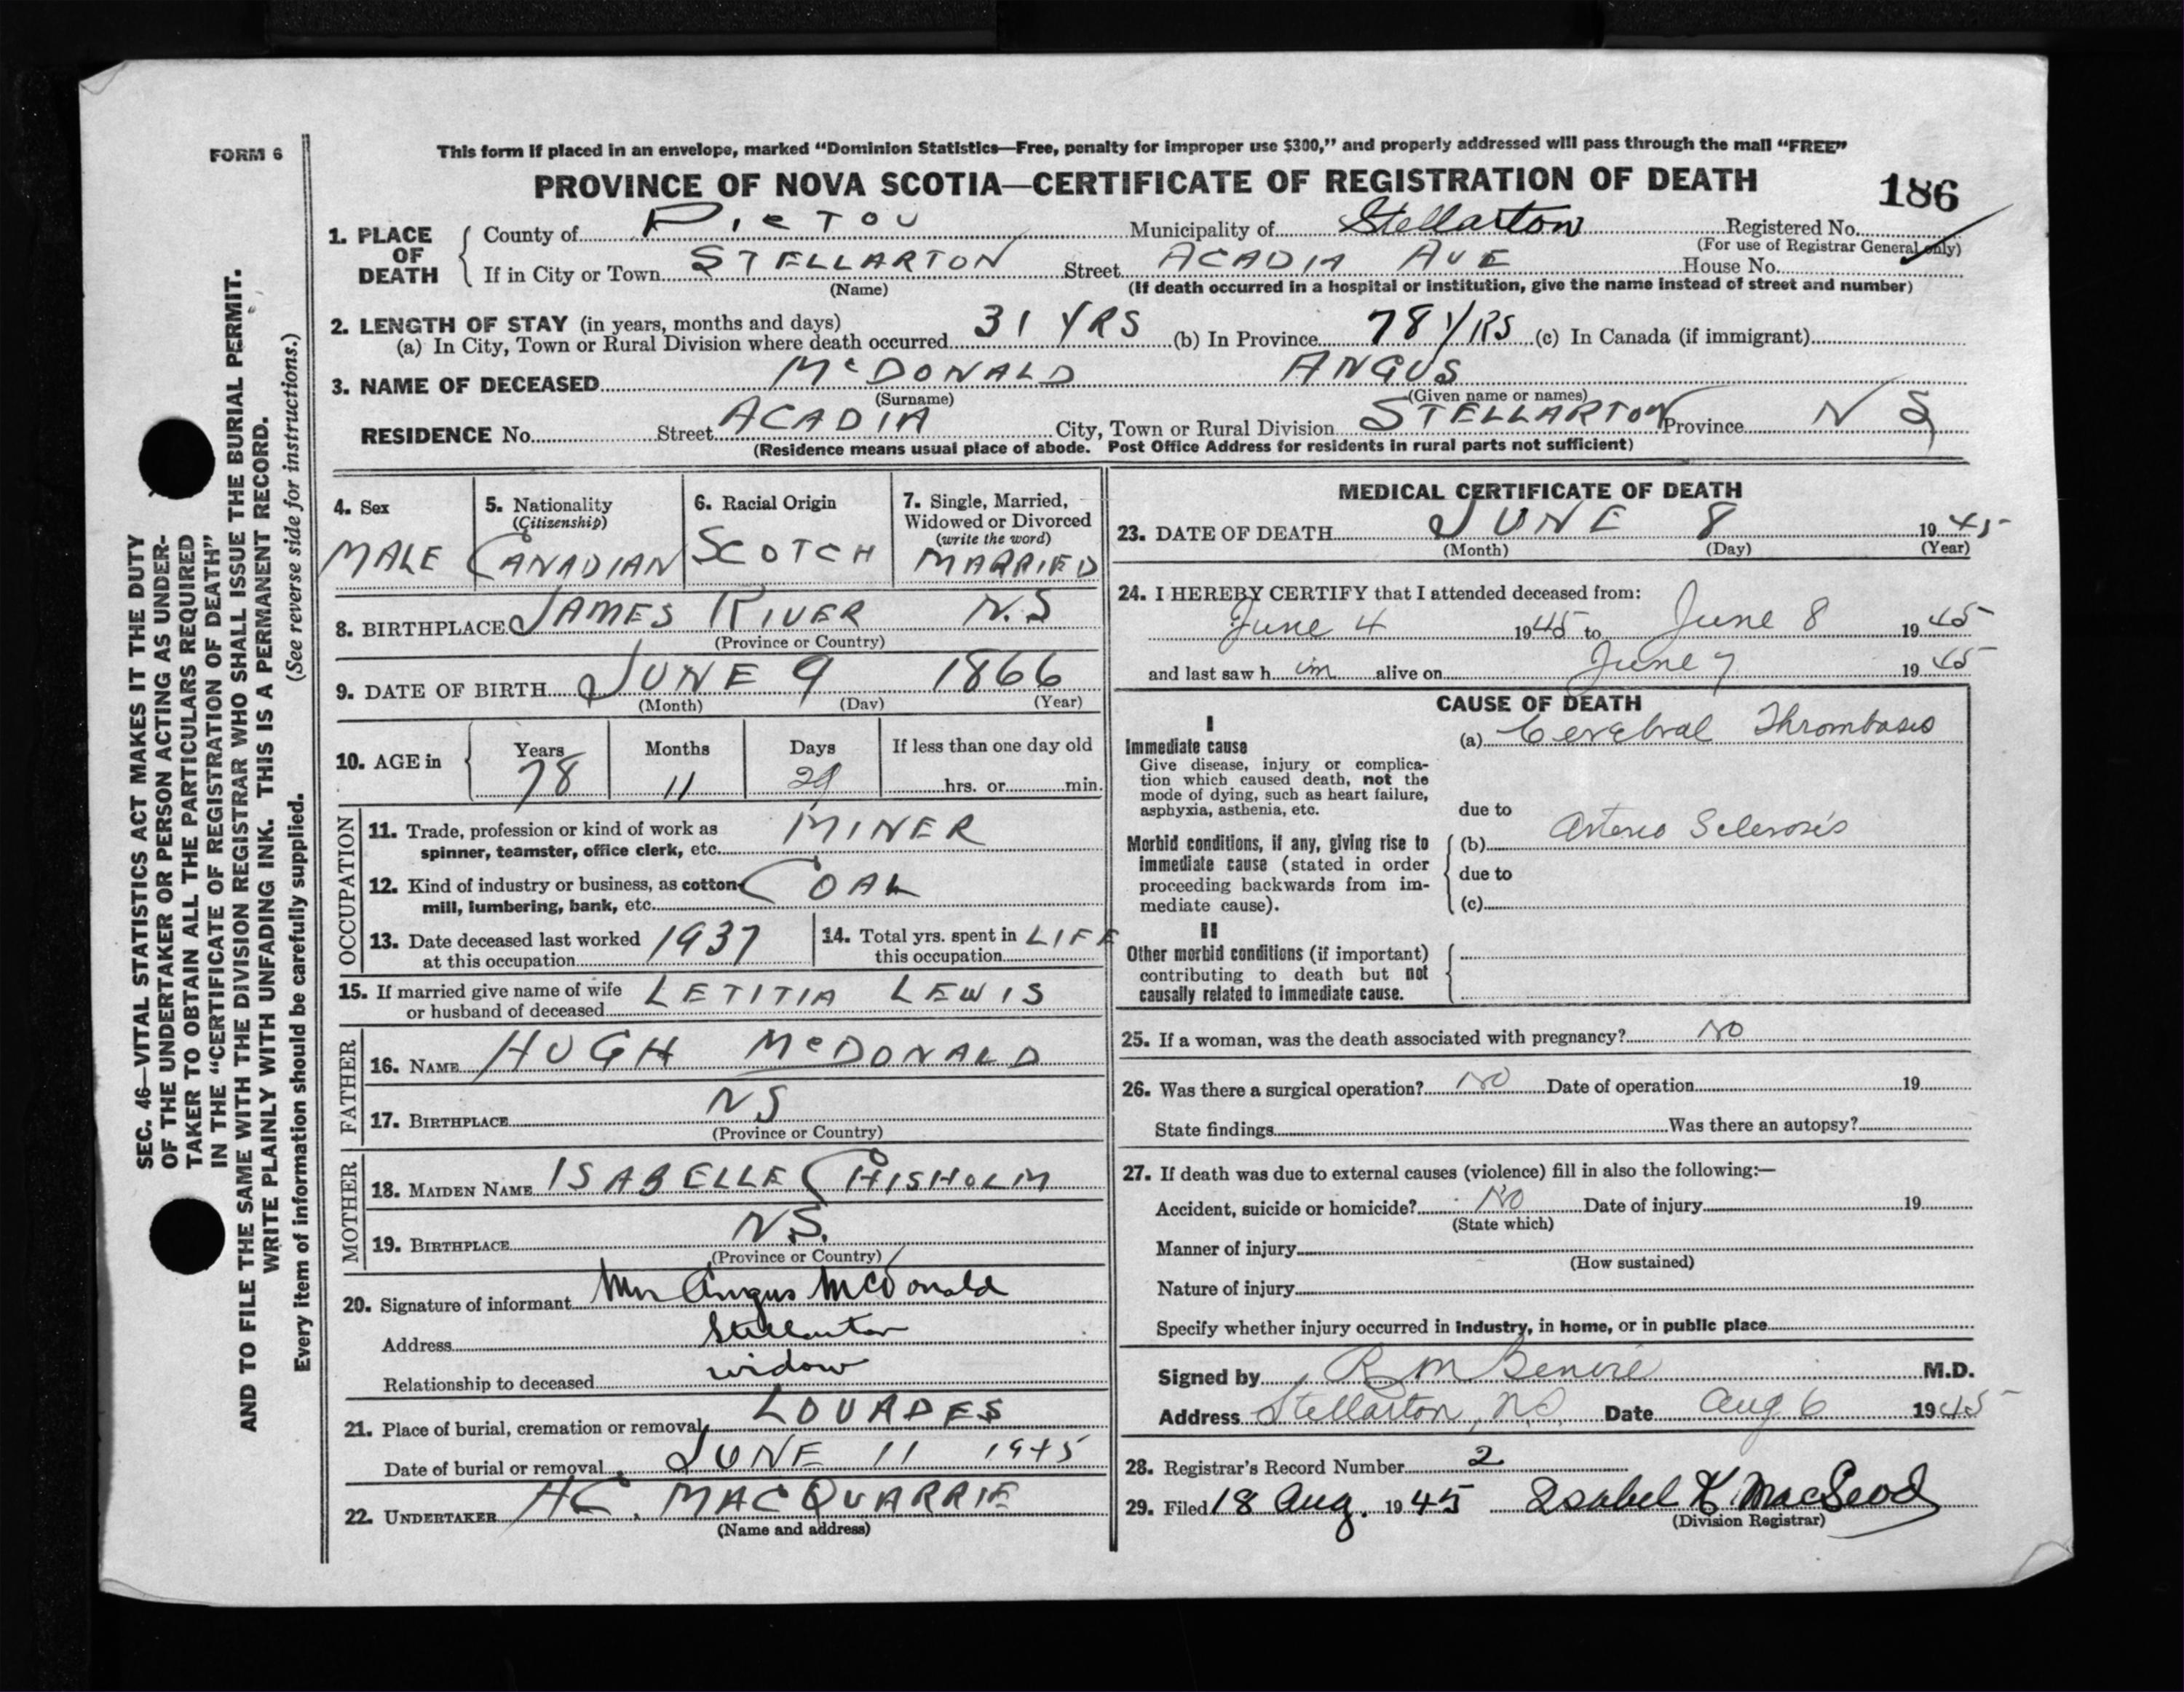 FORM 6
This form if placed in an envelope, marked "Dominion Statistics—Free, penalty for improper use $300," and properly addressed will pass through the mail "FREE"
PROVINCE OF NOVA SCOTIA—CERTIFICATE OF REGISTRATION OF DEATH
186
1. PLACE OF DEATH
County of PICTOU Municipality of Stellarton Registered No.
(For use of Registrar General only)
If in City or Town STELLARTON Street ACADIA AVE House No.
(Name) (If death occurred in a hospital or institution, give the name instead of street and number)
2. LENGTH OF STAY (in years, months and days)
(a) In City, Town or Rural Division where death occurred 31 YRS (b) In Province 78 YRS (c) In Canada (if immigrant)
3. NAME OF DECEASED McDONALD ANGUS
(Surname) (Given name or names)
RESIDENCE No. Street ACADIA City, Town or Rural Division STELLARTON Province N S
(Residence means usual place of abode. Post Office Address for residents in rural parts not sufficient)
4. Sex
MALE
5. Nationality
(Citizenship)
CANADIAN
6. Racial Origin
SCOTCH
7. Single, Married,
Widowed or Divorced
(write the word)
MARRIED
8. BIRTHPLACE JAMES RIVER N.S
(Province or Country)
9. DATE OF BIRTH JUNE 9 1866
(Month) (Day) (Year)
10. AGE in
Years Months Days If less than one day old
78 11 29 hrs. or min.
OCCUPATION
11. Trade, profession or kind of work as
spinner, teamster, office clerk, etc. MINER
12. Kind of industry or business, as cotton
mill, lumbering, bank, etc. COAL
13. Date deceased last worked
at this occupation 1937
14. Total yrs. spent in
this occupation LIFE
15. If married give name of wife
or husband of deceased LETITIA LEWIS
FATHER
16. NAME HUGH McDONALD
17. BIRTHPLACE NS
(Province or Country)
MOTHER
18. MAIDEN NAME ISABELLE CHISHOLM
19. BIRTHPLACE N.S.
(Province or Country)
20. Signature of informant Mrs Angus McDonald
Address Stellarton
Relationship to deceased widow
21. Place of burial, cremation or removal LOUADES
Date of burial or removal JUNE 11 1945
22. UNDERTAKER HC. MACQUARRIE
(Name and address)
MEDICAL CERTIFICATE OF DEATH
23. DATE OF DEATH JUNE 8 1945
(Month) (Day) (Year)
24. I HEREBY CERTIFY that I attended deceased from:
June 4 1945 to June 8 1945
and last saw h im alive on June 7 1945
CAUSE OF DEATH
I
Immediate cause
Give disease, injury or complica-
tion which caused death, not the
mode of dying, such as heart failure,
asphyxia, asthenia, etc.
(a) Cerebral Thrombosis
due to
Morbid conditions, if any, giving rise to
immediate cause (stated in order
proceeding backwards from im-
mediate cause).
(b) Arterio Sclerosis
due to
(c)
II
Other morbid conditions (if important)
contributing to death but not
causally related to immediate cause.
25. If a woman, was the death associated with pregnancy? NO
26. Was there a surgical operation? NO Date of operation 19
State findings Was there an autopsy?
27. If death was due to external causes (violence) fill in also the following:—
Accident, suicide or homicide? NO Date of injury 19
(State which)
Manner of injury
(How sustained)
Nature of injury
Specify whether injury occurred in industry, in home, or in public place
Signed by R M Benvie M.D.
Address Stellarton, N.S. Date Aug 6 1945
28. Registrar's Record Number 2
29. Filed 18 Aug. 1945 Isabel K MacLeod
(Division Registrar)
SEC. 46—VITAL STATISTICS ACT MAKES IT THE DUTY
OF THE UNDERTAKER OR PERSON ACTING AS UNDER-
TAKER TO OBTAIN ALL THE PARTICULARS REQUIRED
IN THE "CERTIFICATE OF REGISTRATION OF DEATH"
AND TO FILE THE SAME WITH THE DIVISION REGISTRAR WHO SHALL ISSUE THE BURIAL PERMIT.
WRITE PLAINLY WITH UNFADING INK. THIS IS A PERMANENT RECORD.
Every item of information should be carefully supplied. (See reverse side for instructions.)